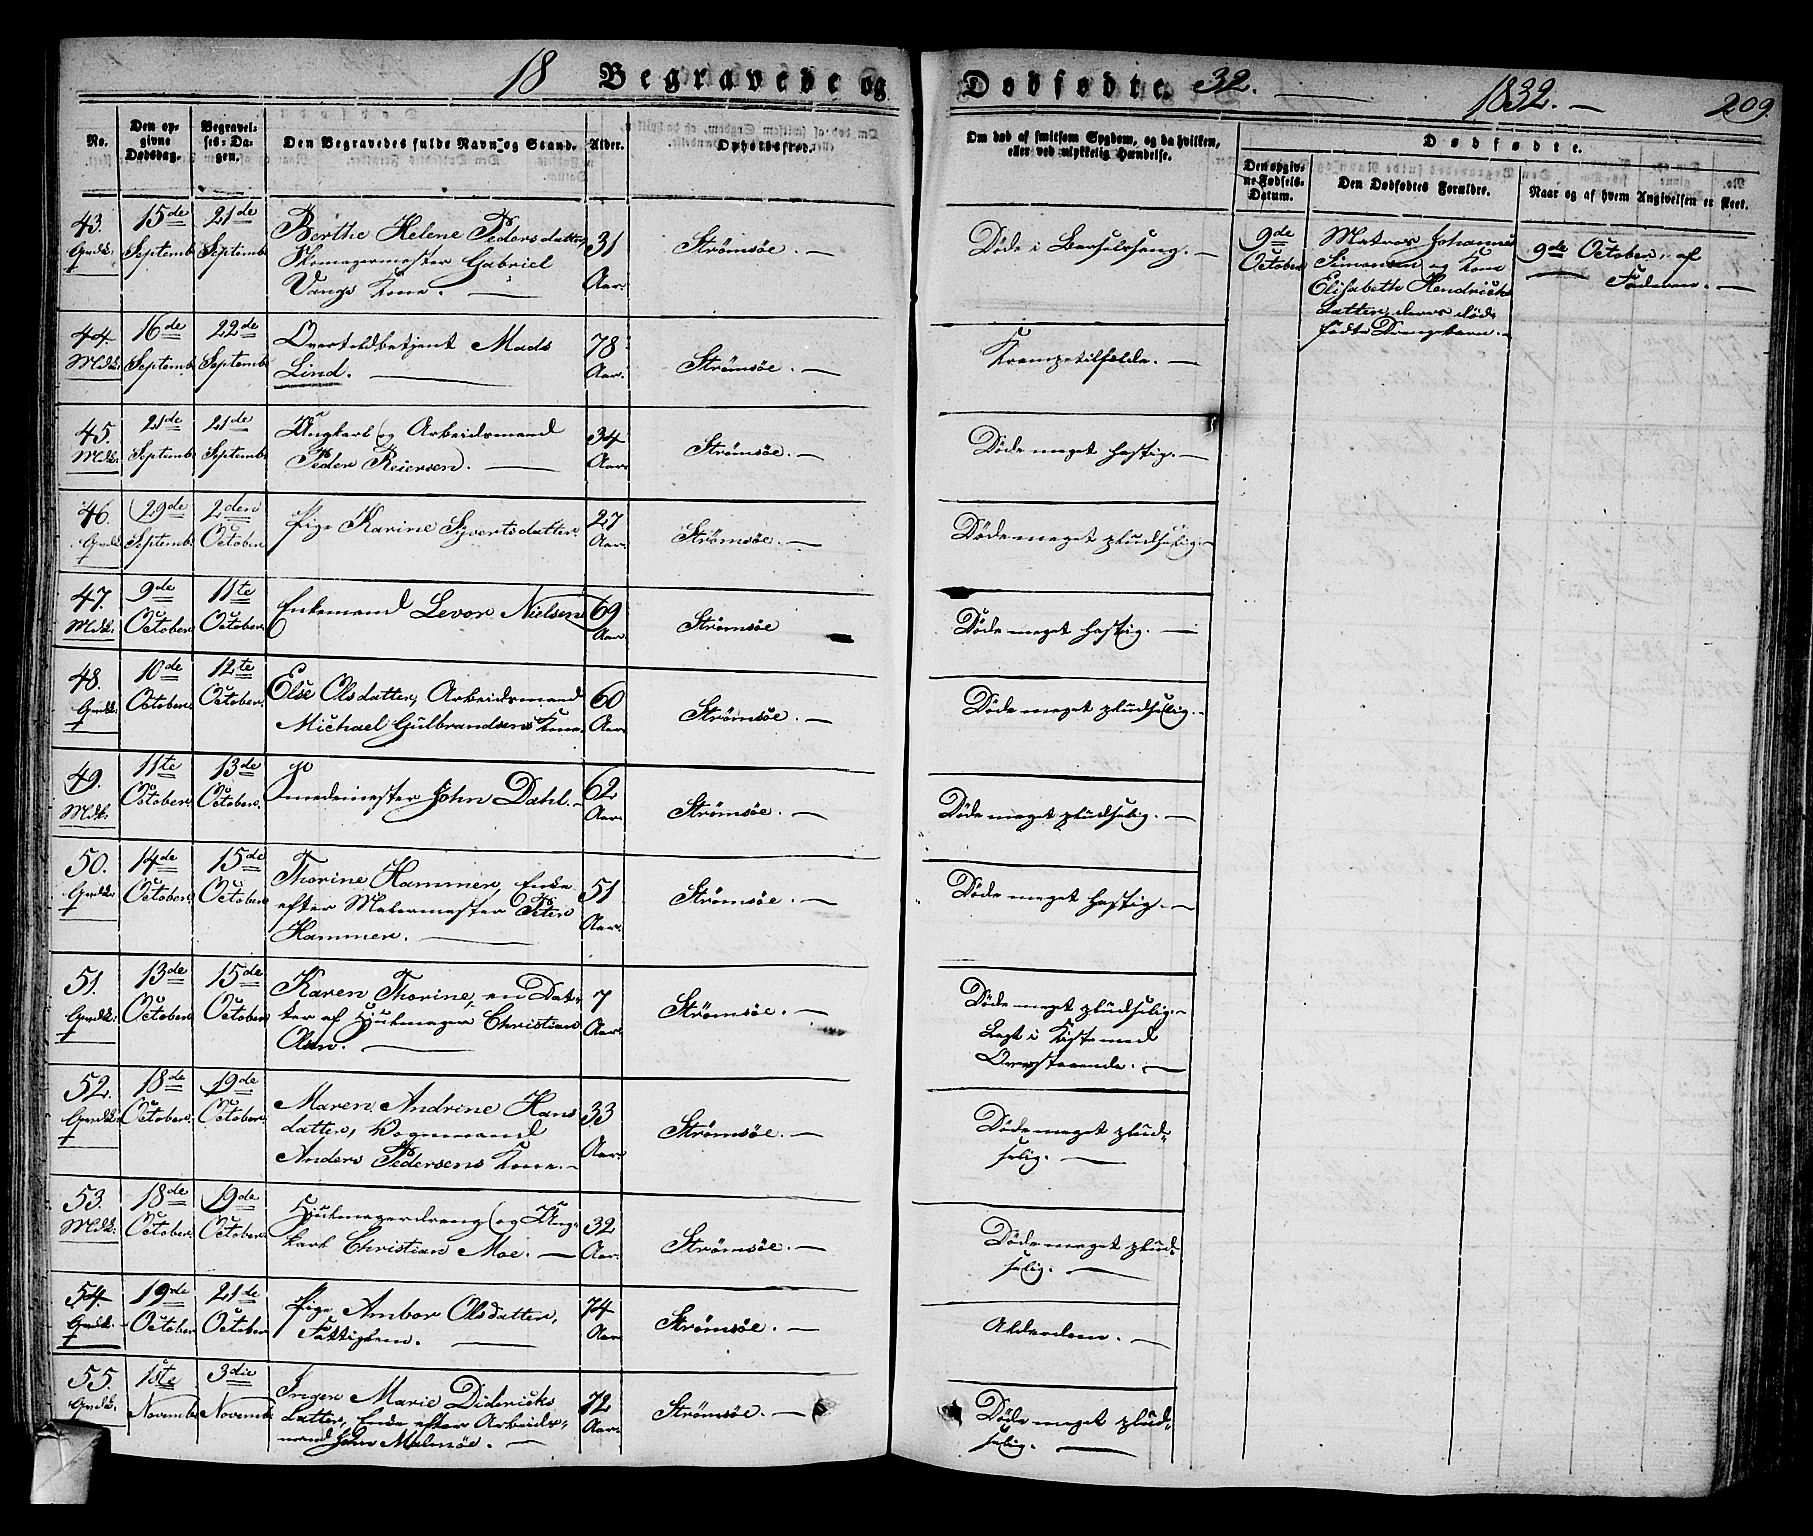 18 Begravede og Dødfødte. 32. — 1832. — 209.
No.
Den opgivne Dødsdag.
Begravelses-Dagen.
Den Begravedes fulde Navn og Stand.
Alder.
Opholdssted.
Om død af smitsom Sygdom, og da hvilken,
eller ved ulykkelig Hændelse.
Dødfødte.
Den opgivne Fødsels-Datum.
Den Dødfødtes Forældre.
Naar og af hvem Angivelsen er skeet.
43. 15de September 21de September
Berthe Helene Peders datter
Skomagermester Gabriel
Vangs Kone. —
31 Aar. Strømsøe. —
Døde i Barselseng. —
9de October
Matros Johannes
Simonsen og Kone
Elisabeth Hendrichs
datter, deres død
fødte Drengebarn. —
9de October, af
Faderen. —
44. Mdk: 16de September 22de September
Overtoldbetjent Mads
Lind. —
78 Aar. Strømsøe. —
Krampetilfælde. —
45. Mdk: 21de September 21de September
Ungkarl og Arbeidsmand
Peder Reiersen. —
34 Aar. Strømsøe. —
Døde meget hastig. —
46. 29de September 2den October
Pige Karine Syvertsdatter.
27 Aar. Strømsøe. —
Døde meget pludselig. —
47. Mdk: 9de October 11te October.
Enkemand Levor Nielsen
69 Aar. Strømsøe
Døde meget hastig. —
48. 10de October. 12te October.
Else Olsdatter, Arbeidsmand
Michael Gulbrandsens Kone.
60 Aar. Strømsøe. —
Døde meget pludselig. —
49. Mdk: 11te October. 13de October.
Smedemester John Dahl. —
62 Aar. Strømsøe. —
Døde meget pludselig. —
50. 14de October. 15de October.
Thorine Hammer, Enke
efter Malermester Peter
Hammer. —
51 Aar. Strømsøe. —
Døde meget hastig. —
51. 13de October. 15de October.
Karen Thorine, en Dat-
ter af Hjulmager Christian
Olsen. —
7 Aar. Strømsøe. —
Døde meget pludselig. —
Lagt i Kiste med
Ovenstaaende. —
52. 18de October. 19de October.
Maren Andrine Hans
datter, Vognmand
Anders Pedersens Kone. —
33 Aar. Strømsøe. —
Døde meget plud-
selig. —
53. Mdk: 18de October. 19de October.
Hjulmagerdreng og Ung-
karl Christian Moe. —
32 Aar. Strømsøe. —
Døde meget plud-
selig. —
54. 19de October 21de October
Pige Ambor Olsdatter,
Fattiglem. —
74 Aar. Strømsøe. —
Alderdom. —
55. 1ste November 3die November
Inger Marie Didericks
datter, Enke efter Arbeids-
mand John Malmøe. —
72 Aar. Strømsøe. —
Døde meget plud-
selig. —